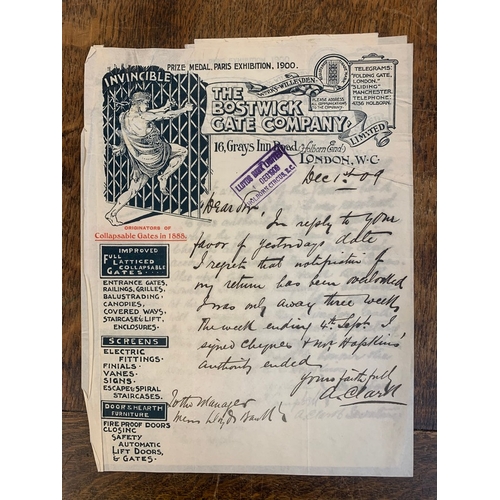 PRIZE MEDAL, PARIS EXHIBITION, 1900.
INVINCIBLE
WORKS-WILLESDEN
THE
BOSTWICK
GATE COMPANY
LIMITED
PLEASE ADDRESS
ALL COMMUNICATIONS
TO THE COMPANY.
TELEGRAMS:
"FOLDING GATE,
LONDON."
"SLIDING"
MANCHESTER.
TELEPHONE:
4736 HOLBORN.
16, Grays Inn Road, (Holborn End)
LONDON. W.C.
LLOYDS BANK LIMITED
HOLBORN CIRCUS, E.C.
Dec 1st 09
ORIGINATORS OF
Collapsable Gates in 1888.
IMPROVED
FULL
LATTICED
COLLAPSABLE
GATES
ENTRANCE GATES,
RAILINGS, GRILLES,
BALUSTRADING,
CANOPIES,
COVERED WAYS,
STAIRCASE & LIFT
ENCLOSURES.
SCREENS
ELECTRIC
FITTINGS.
FINIALS.
VANES.
SIGNS.
ESCAPE & SPIRAL
STAIRCASES.
DOOR & HEARTH
FURNITURE
FIRE PROOF DOORS
CLOSING
SAFETY
AUTOMATIC
LIFT DOORS,
& GATES.
Dear Sir, In reply to your
favor of yesterdays date
I regret that notification of
my return has been overlooked
I was only away three weeks
the week ending 4th Sept. I
signed cheques & Mr Hopkins'
authority ended.
Yours faithfully
A. Clark
To the Manager
Messrs Lloyds Bank Ld